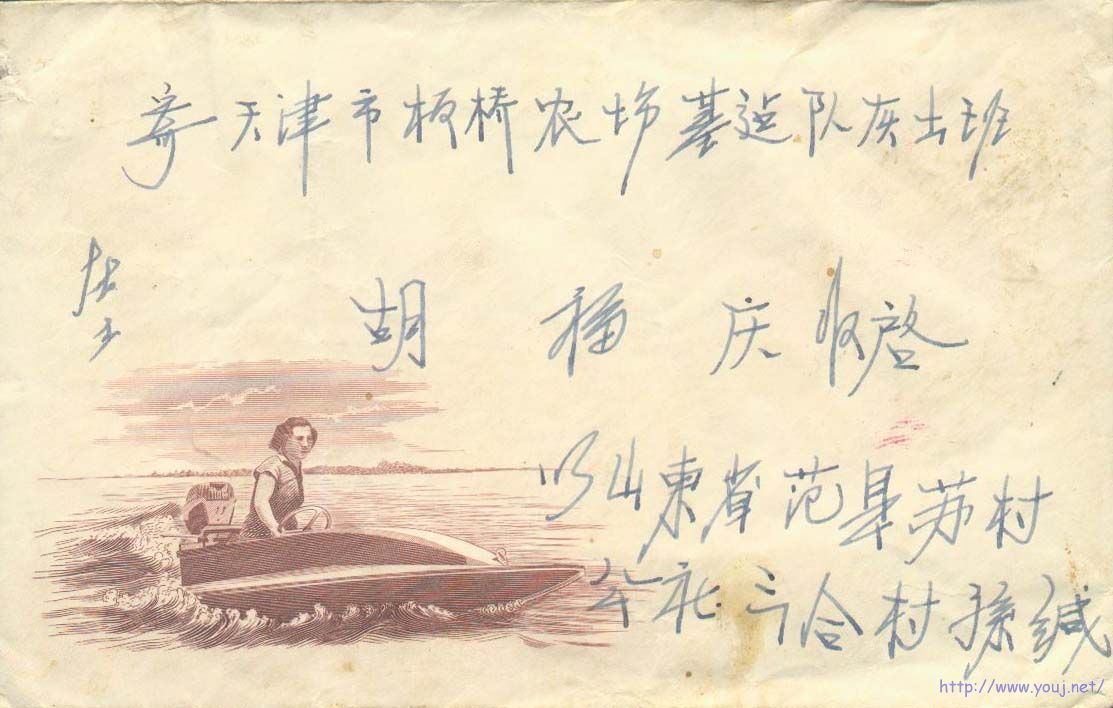 寄天津市板桥农场基建队灰土班
胡福庆收启
山東省范县苏村
公社三合村孫缄
http://www.youj.net/